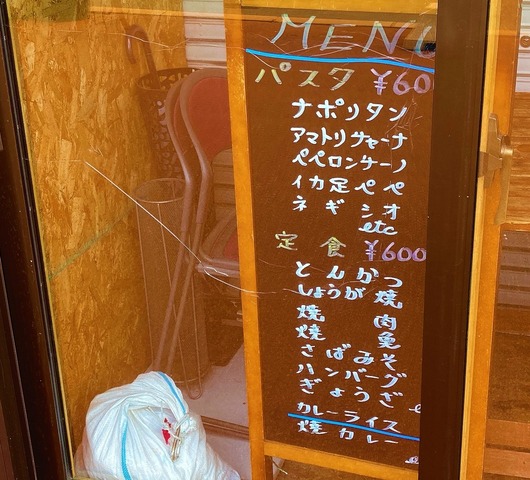 MENU
パスタ ¥60
ナポリタン
アマトリチャーナ
ペペロンチーノ
イカ足ペペ
ネギシオ
etc
定食 ¥600
とんかつ
しょうが焼
焼肉
焼魚
さばみそ
ハンバーグ
ぎょうざ
カレーライス
焼カレー